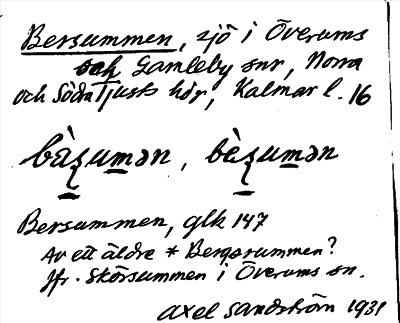 Bersummen, sjö i Överums
och Gamleby snr, Norra
och Södra Tjusts hdr, Kalmar l. 16
bàʂumən, bèʂumən
Bersummen, glk 147
Av ett äldre * Bergsrummen?
Jfr. Skörsummen i Överums sn.
Axel Sandström 1931